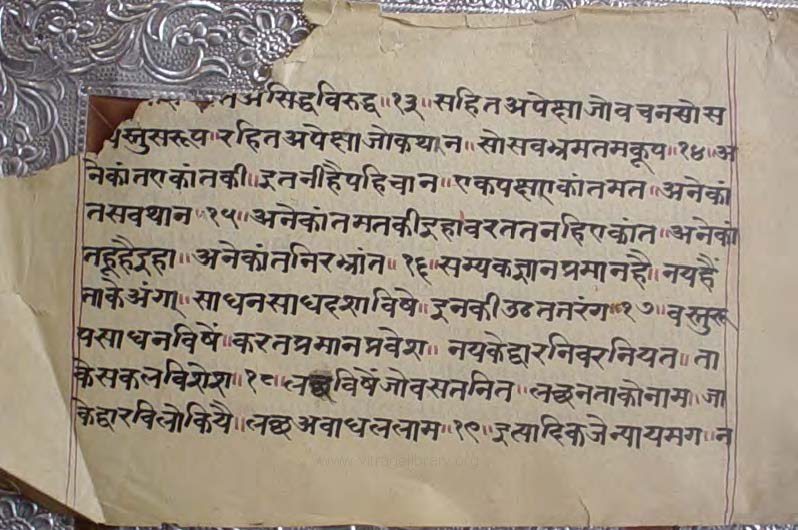 त असिद्धविरुद्ध॥१३॥ सहितअपेक्षाजोवचनसोस
वस्तुसरूप॥रहितअपेक्षाजोकथान॥ सोसवभ्रमतमकूप॥१४॥अ
नेकांतएकांतकी॥इतनीहैपहिचान॥एकपक्षएकांतमत॥अनेकां
तसवथान॥१५॥अनेकांतमतकीइहावरततनहिएकांत॥अनेकां
तहूहैइहा॥ अनेकांतनिरभ्रांत॥१६॥सम्यकज्ञानप्रमानहै॥नयहैं
ताकैअंग॥ साधनसाधदशाविषे॥इनकीउठततरंग॥१७॥वस्तुरू
पसाधनविषें॥करतप्रमानप्रवेश॥ नयकेद्वारनिवरनियत॥ता
केसकलविशेश॥१८॥लछविषेंजोवसतनित॥लछनताकोनाम॥जा
केद्वारविलोकियै॥लछअवाधललाम॥१९॥इत्यादिकजेन्यायमग॥न
www.vitragelibrary.org